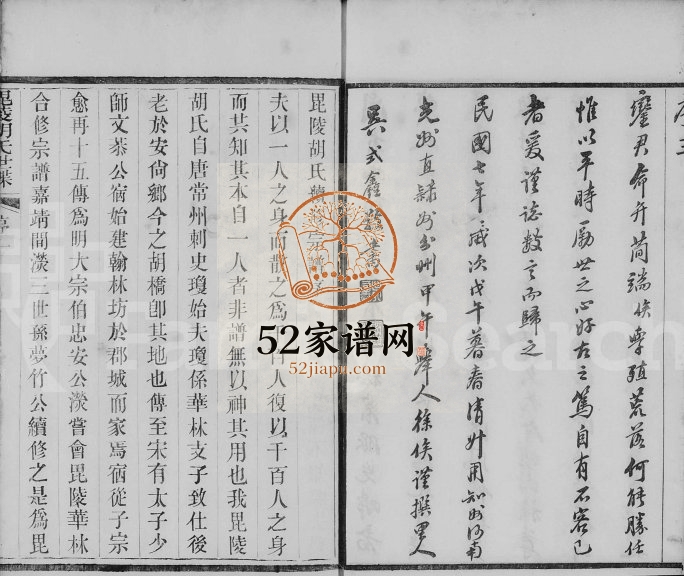 序三
鑾君命弁简端侯學殖荒落何能勝任
惟以平時勵世之心好古之篤自有不容已
者爰謹誌數言而歸之
民國七年歲次戊午暮春清
光州直隸州甲午人徐侯謹撰
吳式鑫
毘陵胡氏
夫以一人之身而散之為千人復以千百人之身
而共知其本自一人者非譜無以神其用也我毘陵
胡氏自唐常州刺史瓊始夫瓊係華林支子致仕後
老於安尚鄉今之胡橋即其地也傳至宋有太子少
師文恭公宿始建翰林坊於郡城而家焉宿從子宗
愈再十五傳為明大宗伯忠安公濙嘗會毘陵華林
合修宗譜嘉靖間濙三世孫夢竹公續修之是為毘
毘陵胡氏世牒
52家谱网
52jiapu.com